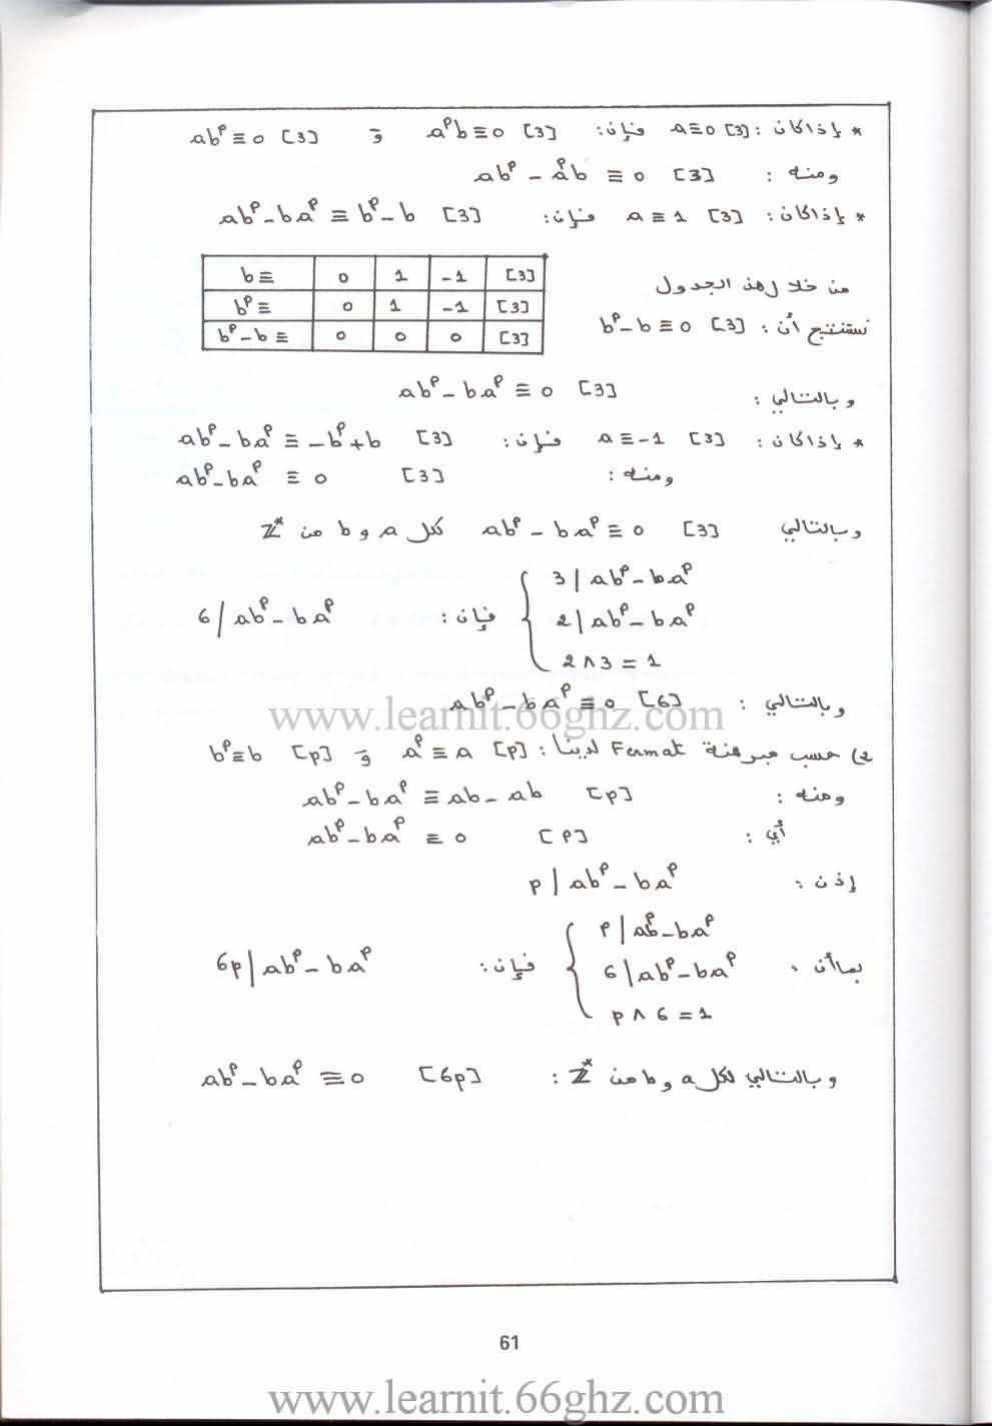 * إذا كان : a≡0 [3] فإن: a^p b≡0 [3] و ab^p≡0 [3]
ومنه : ab^p - a^p b ≡ 0 [3]
* إذا كان : a≡1 [3] فإن: ab^p - ba^p ≡ b^p - b [3]
b≡ 0 1 -1 [3]
b^p≡ 0 1 -1 [3]
b^p - b ≡ 0 0 0 [3]
من خلا ل هذ الجدول
نستنتج أن : b^p - b ≡ 0 [3]
وبالتالي : ab^p - ba^p ≡ 0 [3]
* إذا كان : a≡-1 [3] فإن: ab^p - ba^p ≡ -b^p + b [3]
ومنه : ab^p - ba^p ≡ 0 [3]
وبالتالي ab^p - ba^p ≡ 0 [3] لكل a و b من Z*
3 | ab^p - ba^p
2 | ab^p - ba^p فإن : 6 / ab^p - ba^p
2∧3 = 1
وبالتالي : ab^p - ba^p ≡ 0 [6]
www.learnit.66ghz.com
2) حسب مبرهنة Fermat لدينا : a^p ≡ a [p] و b^p ≡ b [p]
ومنه : ab^p - ba^p ≡ ab - ab [p]
أي : ab^p - ba^p ≡ 0 [p]
إذن : p | ab^p - ba^p
p | ab^p - ba^p
بما أن : 6 | ab^p - ba^p فإن : 6p | ab^p - ba^p
p ∧ 6 = 1
وبالتالي لكل a و b من Z* : ab^p - ba^p ≡ 0 [6p]
61
www.learnit.66ghz.com